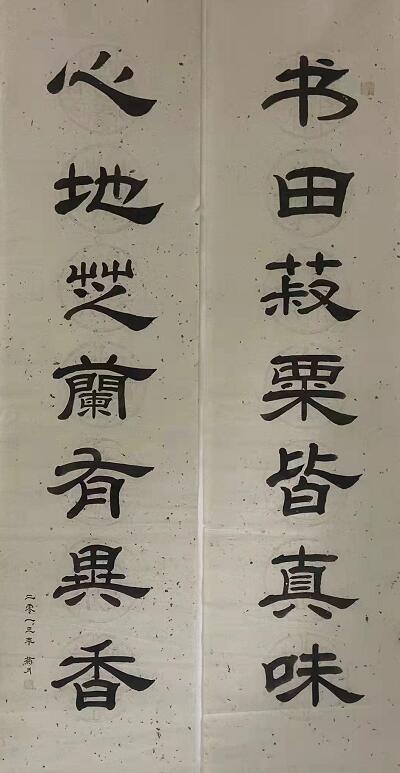 书田菽粟皆真味
心地芝蘭有異香
二零一三年